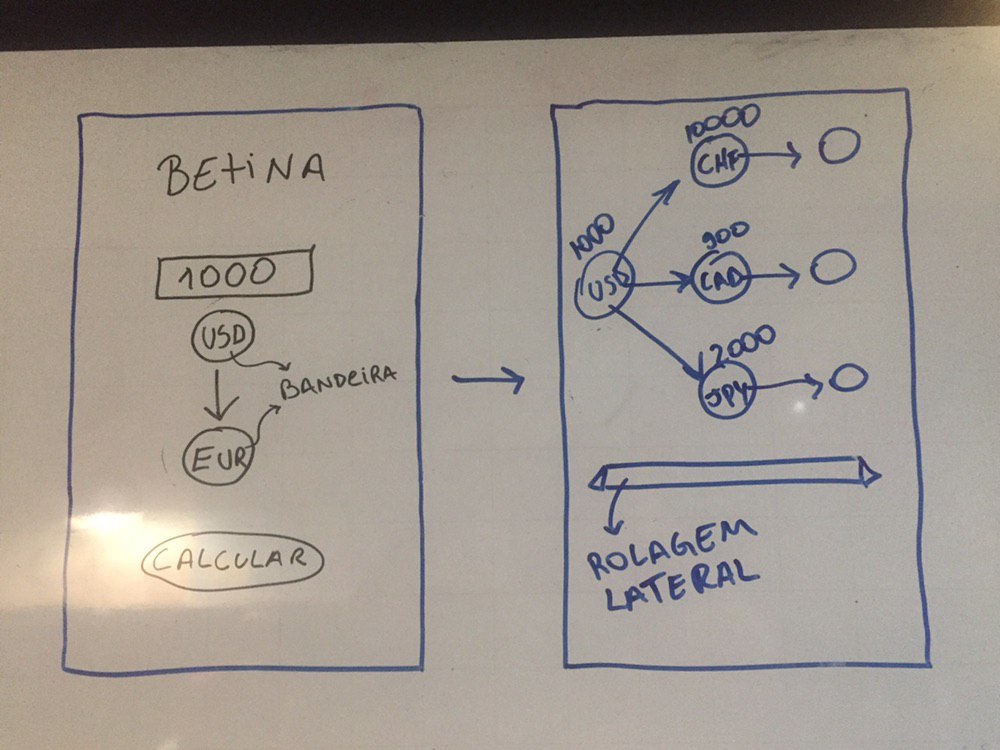 BETINA
1000
USD
BANDEIRA
EUR
CALCULAR
10000
CHF
1000
USD
900
CAD
12000
JPY
ROLAGEM
LATERAL